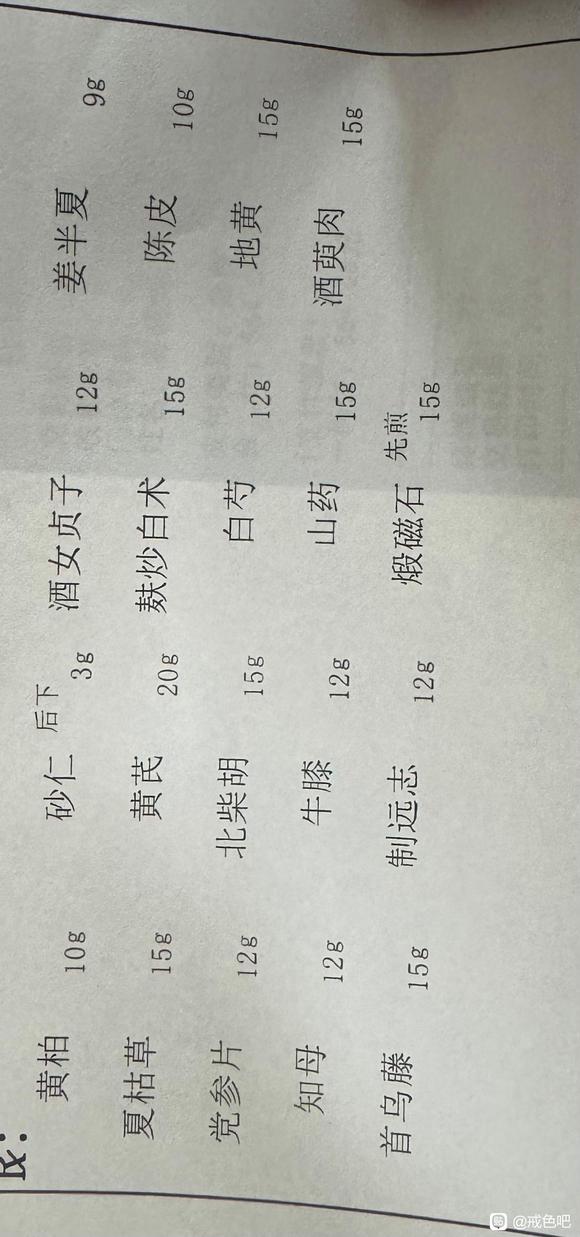 R:
黄柏 10g 砂仁 后下 3g 酒女贞子 12g 姜半夏 9g
夏枯草 15g 黄芪 20g 麸炒白术 15g 陈皮 10g
党参片 12g 北柴胡 15g 白芍 12g 地黄 15g
知母 12g 牛膝 12g 山药 15g 酒萸肉 15g
首乌藤 15g 制远志 12g 煅磁石 先煎 15g
贴 @戒色吧